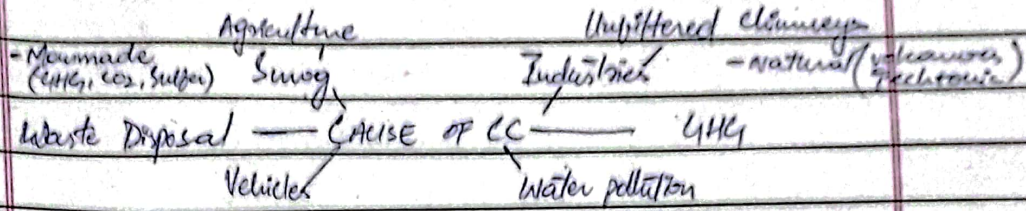 Agriculture Unfiltered Chimneys
- Manmade Smog Industries - Natural (volcanoes
(GHG, CO2, Sulfer) Techtonic)
Waste Disposal — CAUSE OF CC — GHG
Vehicles Water pollution